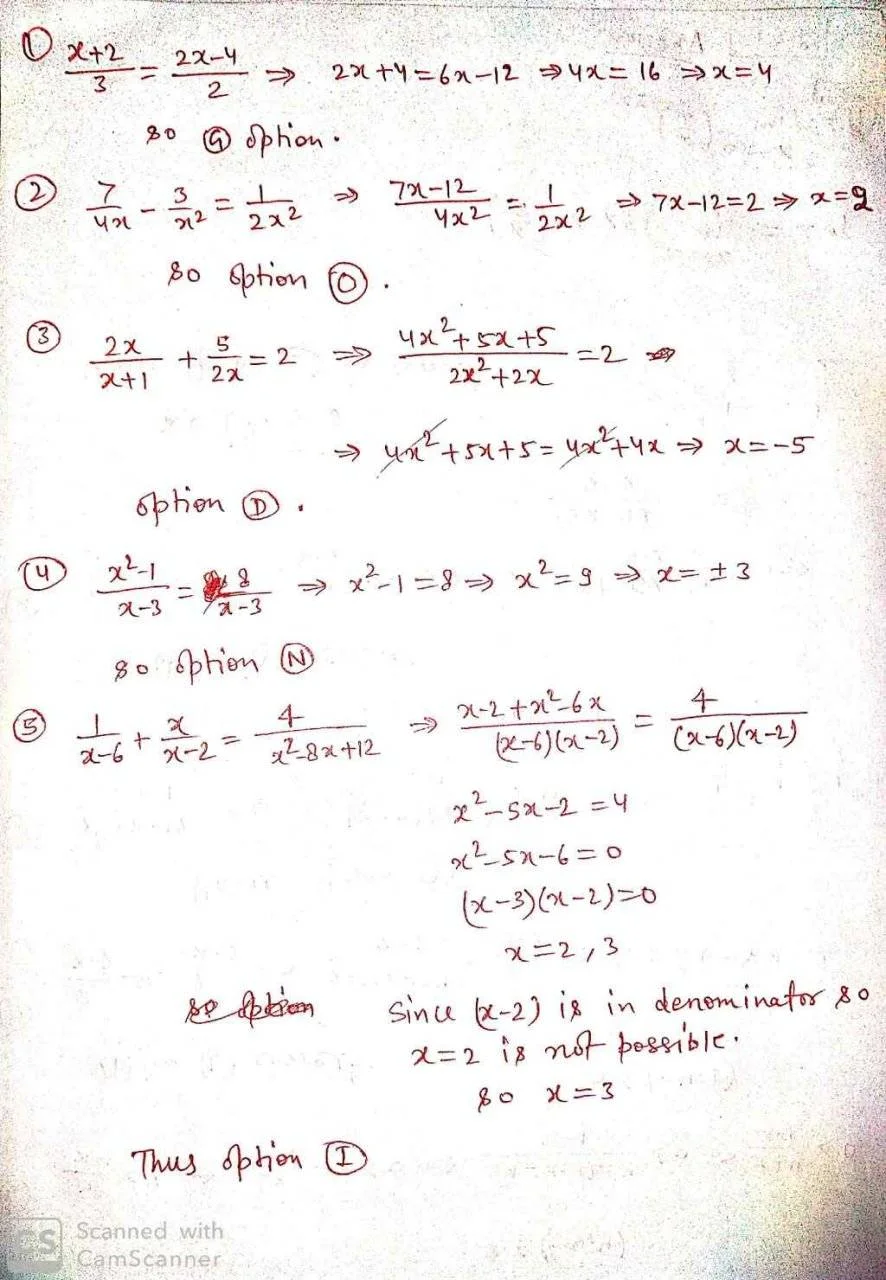 ① x+2/3 = 2x-4/2 ⇒ 2x+4=6x-12 ⇒4x=16 ⇒x=4
so Ⓖ option.
② 7/4x - 3/x² = 1/2x² ⇒ 7x-12/4x² = 1/2x² ⇒ 7x-12=2 ⇒ x=2
so option Ⓞ.
③ 2x/x+1 + 5/2x = 2 ⇒ 4x²+5x+5/2x²+2x = 2
⇒ 4x²+5x+5=4x²+4x ⇒ x=-5
option Ⓓ.
④ x²-1/x-3 = 8/x-3 ⇒ x²-1=8 ⇒ x²=9 ⇒ x=±3
so option Ⓝ
⑤ 1/x-6 + x/x-2 = 4/x²-8x+12 ⇒ x-2+x²-6x/(x-6)(x-2) = 4/(x-6)(x-2)
x²-5x-2=4
x²-5x-6=0
(x-3)(x-2)=0
x=2,3
so option Since (x-2) is in denominator so
x=2 is not possible.
so x=3
Thus option Ⓘ
CS Scanned with
CamScanner